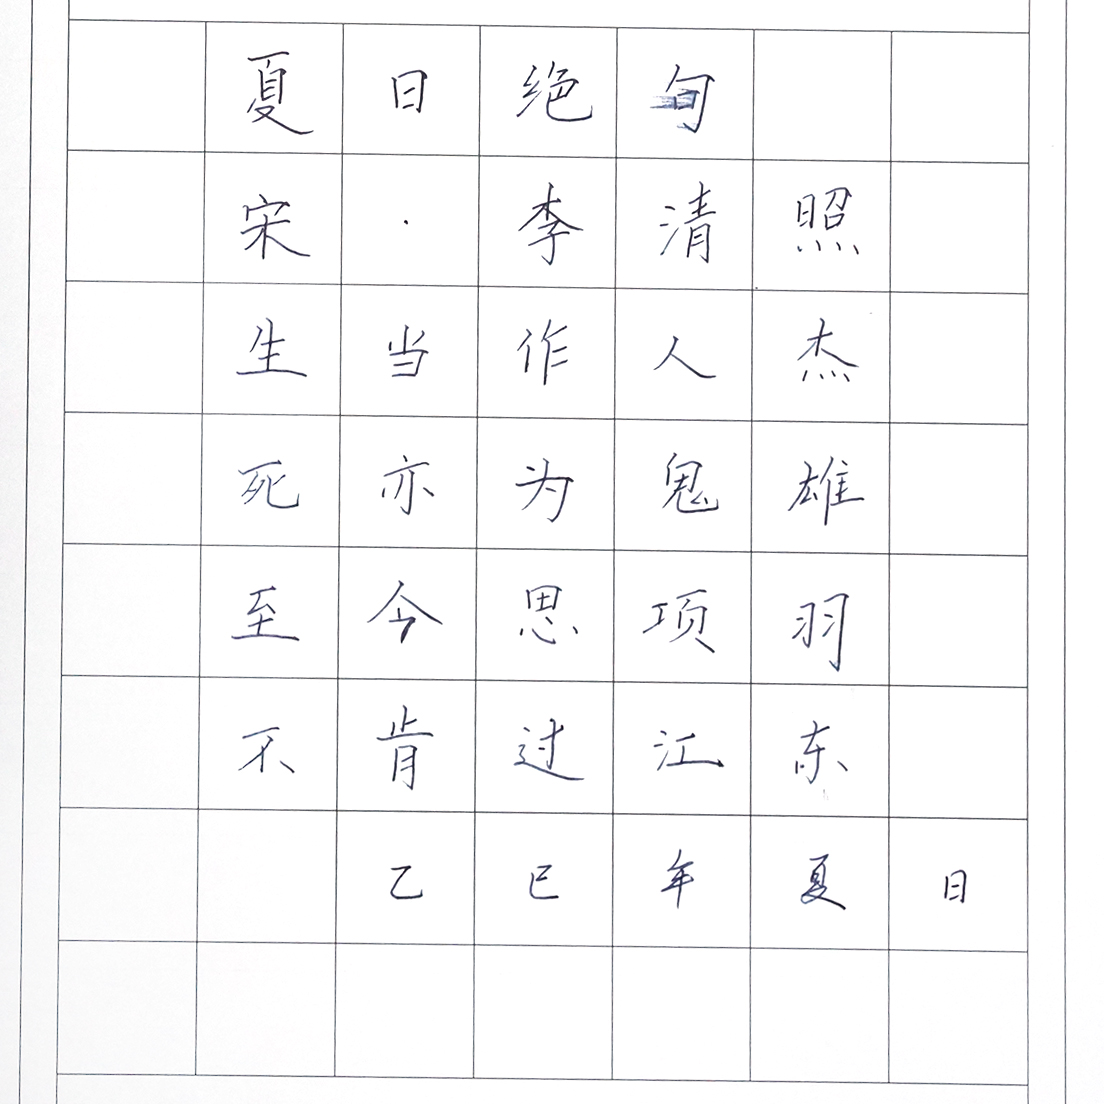 夏日绝句
宋·李清照
生当作人杰
死亦为鬼雄
至今思项羽
不肯过江东
乙巳年夏日